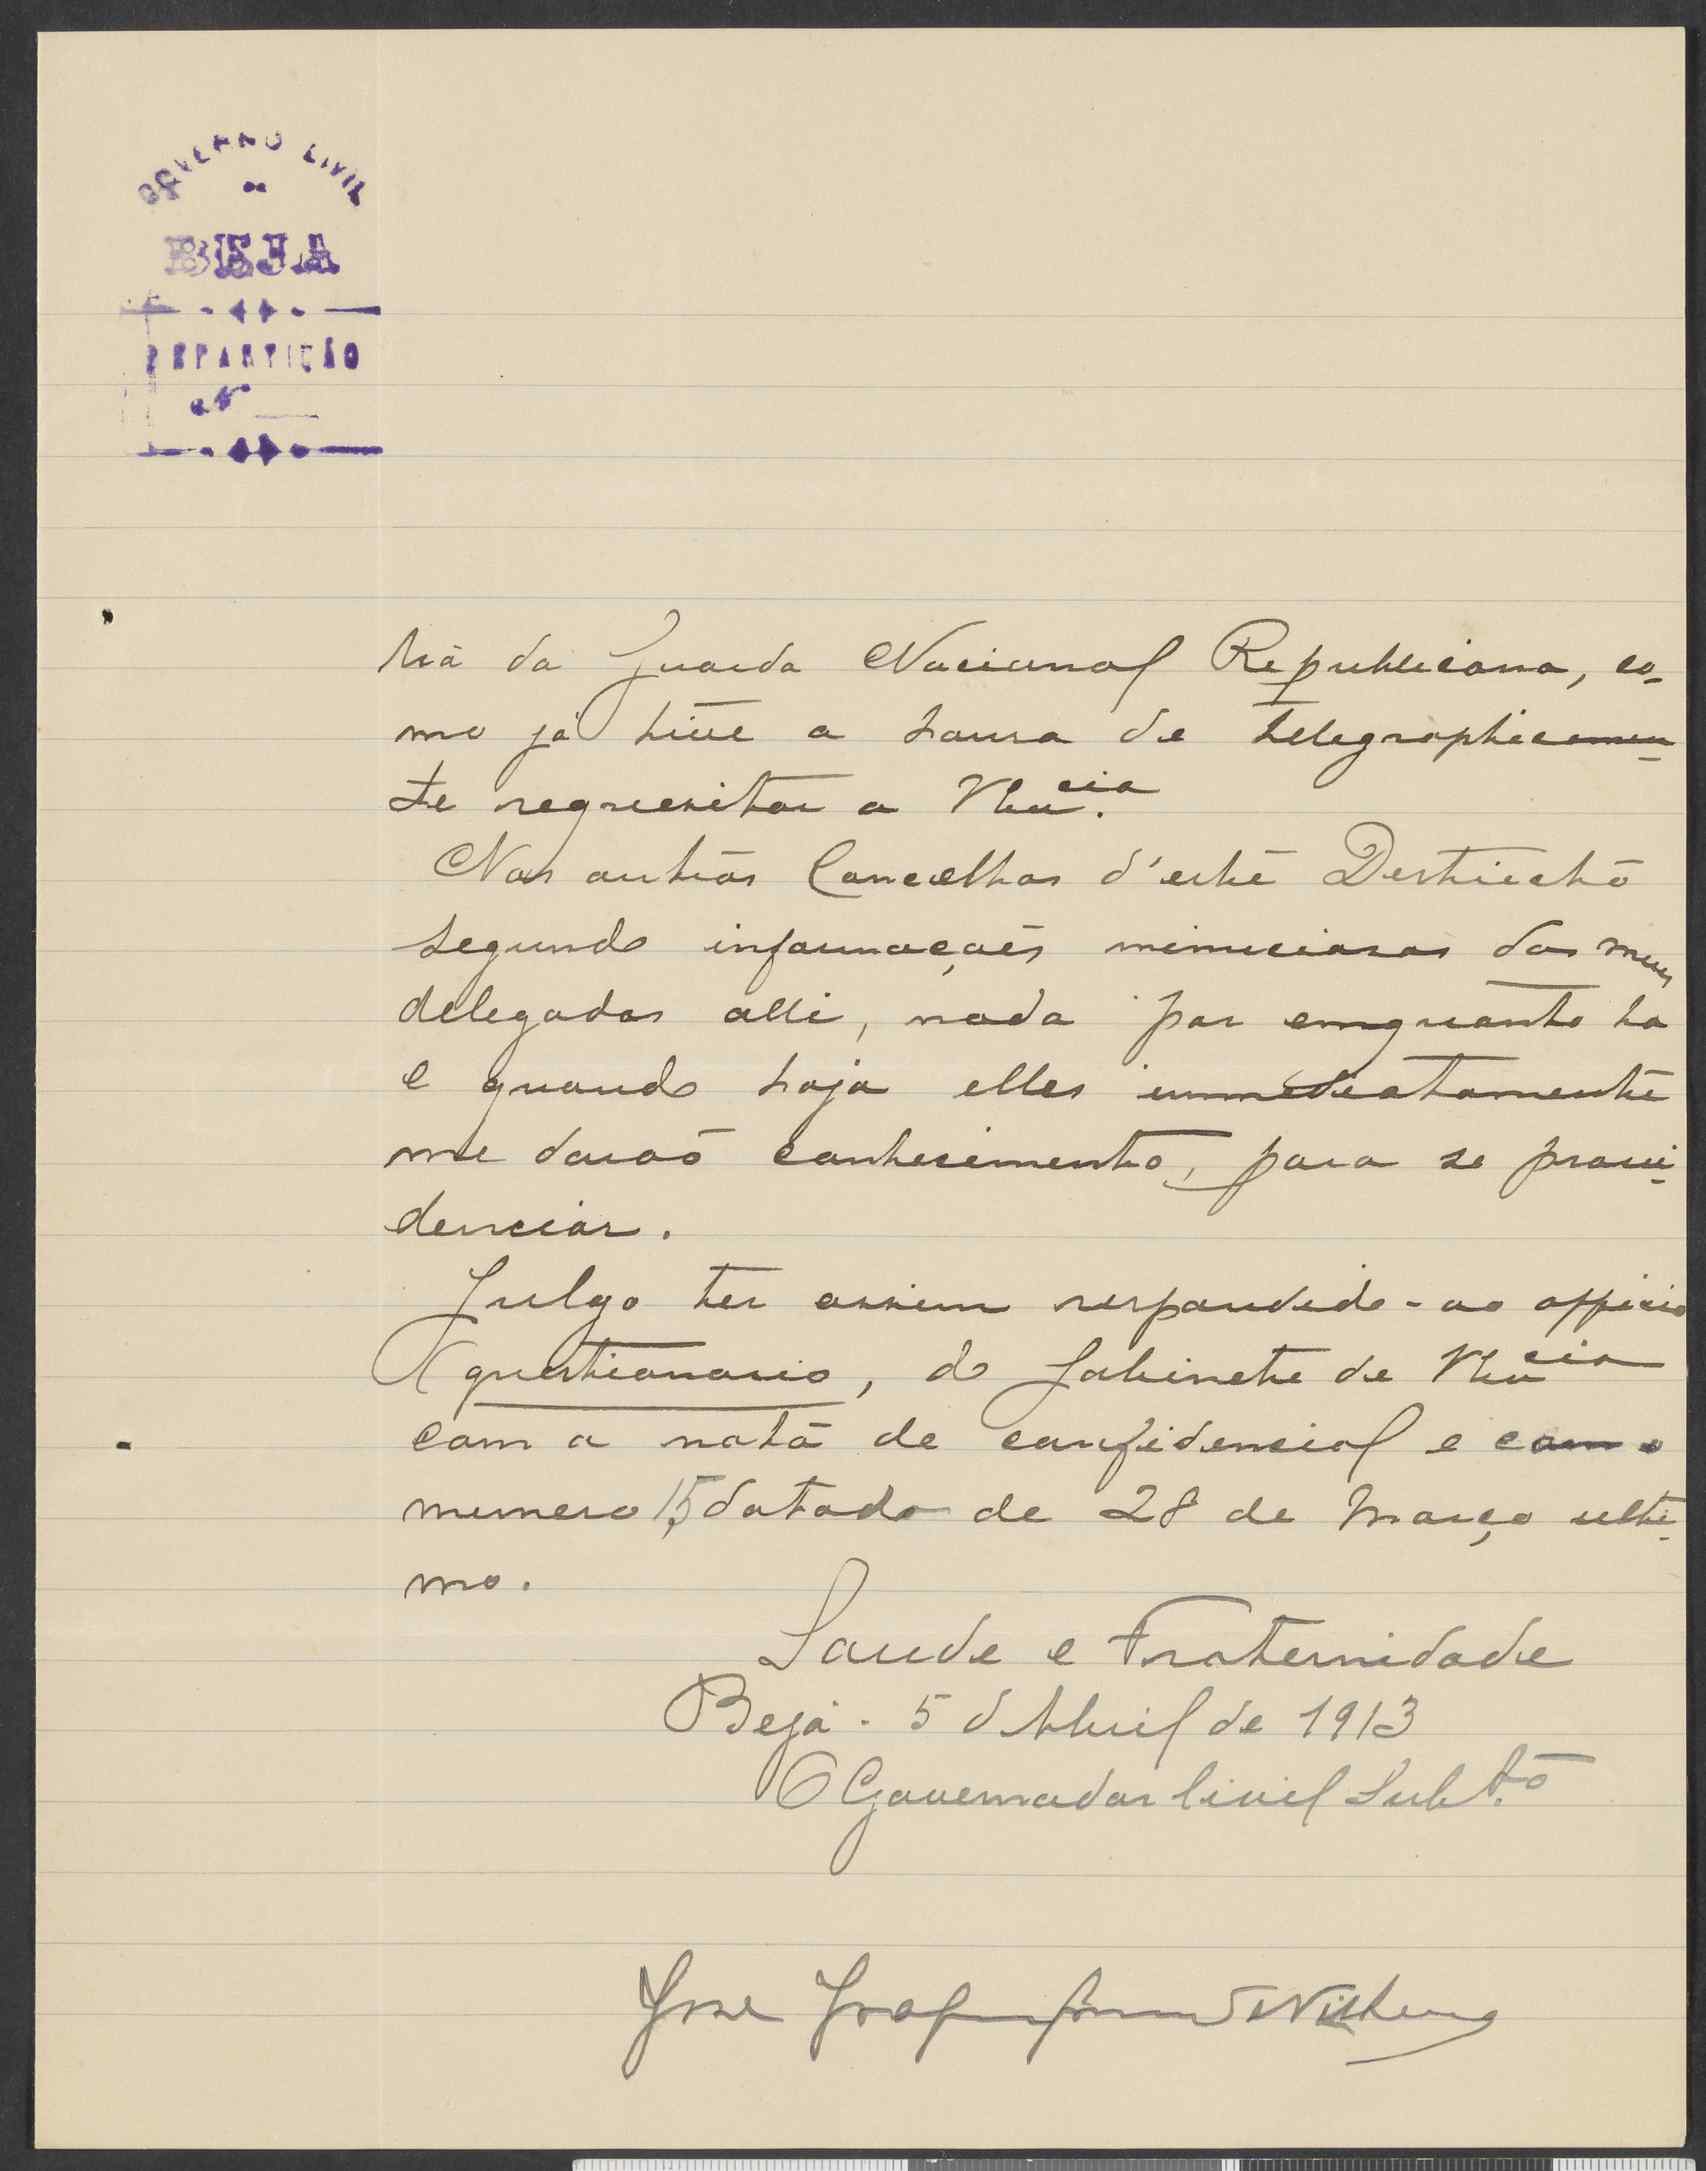 GOVERNO CIVIL
DE
BEJA
REPARTIÇÃO
Nº
tria da Guarda Nacional Republicana, co-
mo já tive a honra de telegraphicamen-
te requesitar a V. Ex.cia.
Nos outros Concelhos d'este Destricto
segundo informações minuciosas dos meus
delegados alli, nada por emquanto ha
e quando haja elles immediatamente
me darão conhecimento, para se provi-
denciar.
Julgo ter assim respondido - ao officio
questionario, do Gabinete de V. Ex.cia
com a nota de confidencial e com o
numero 15, datado de 28 de Março ulti-
mo.
Saude e Fraternidade
Beja. 5 d Abril de 1913
O Governador Civil Subt.to
Jose